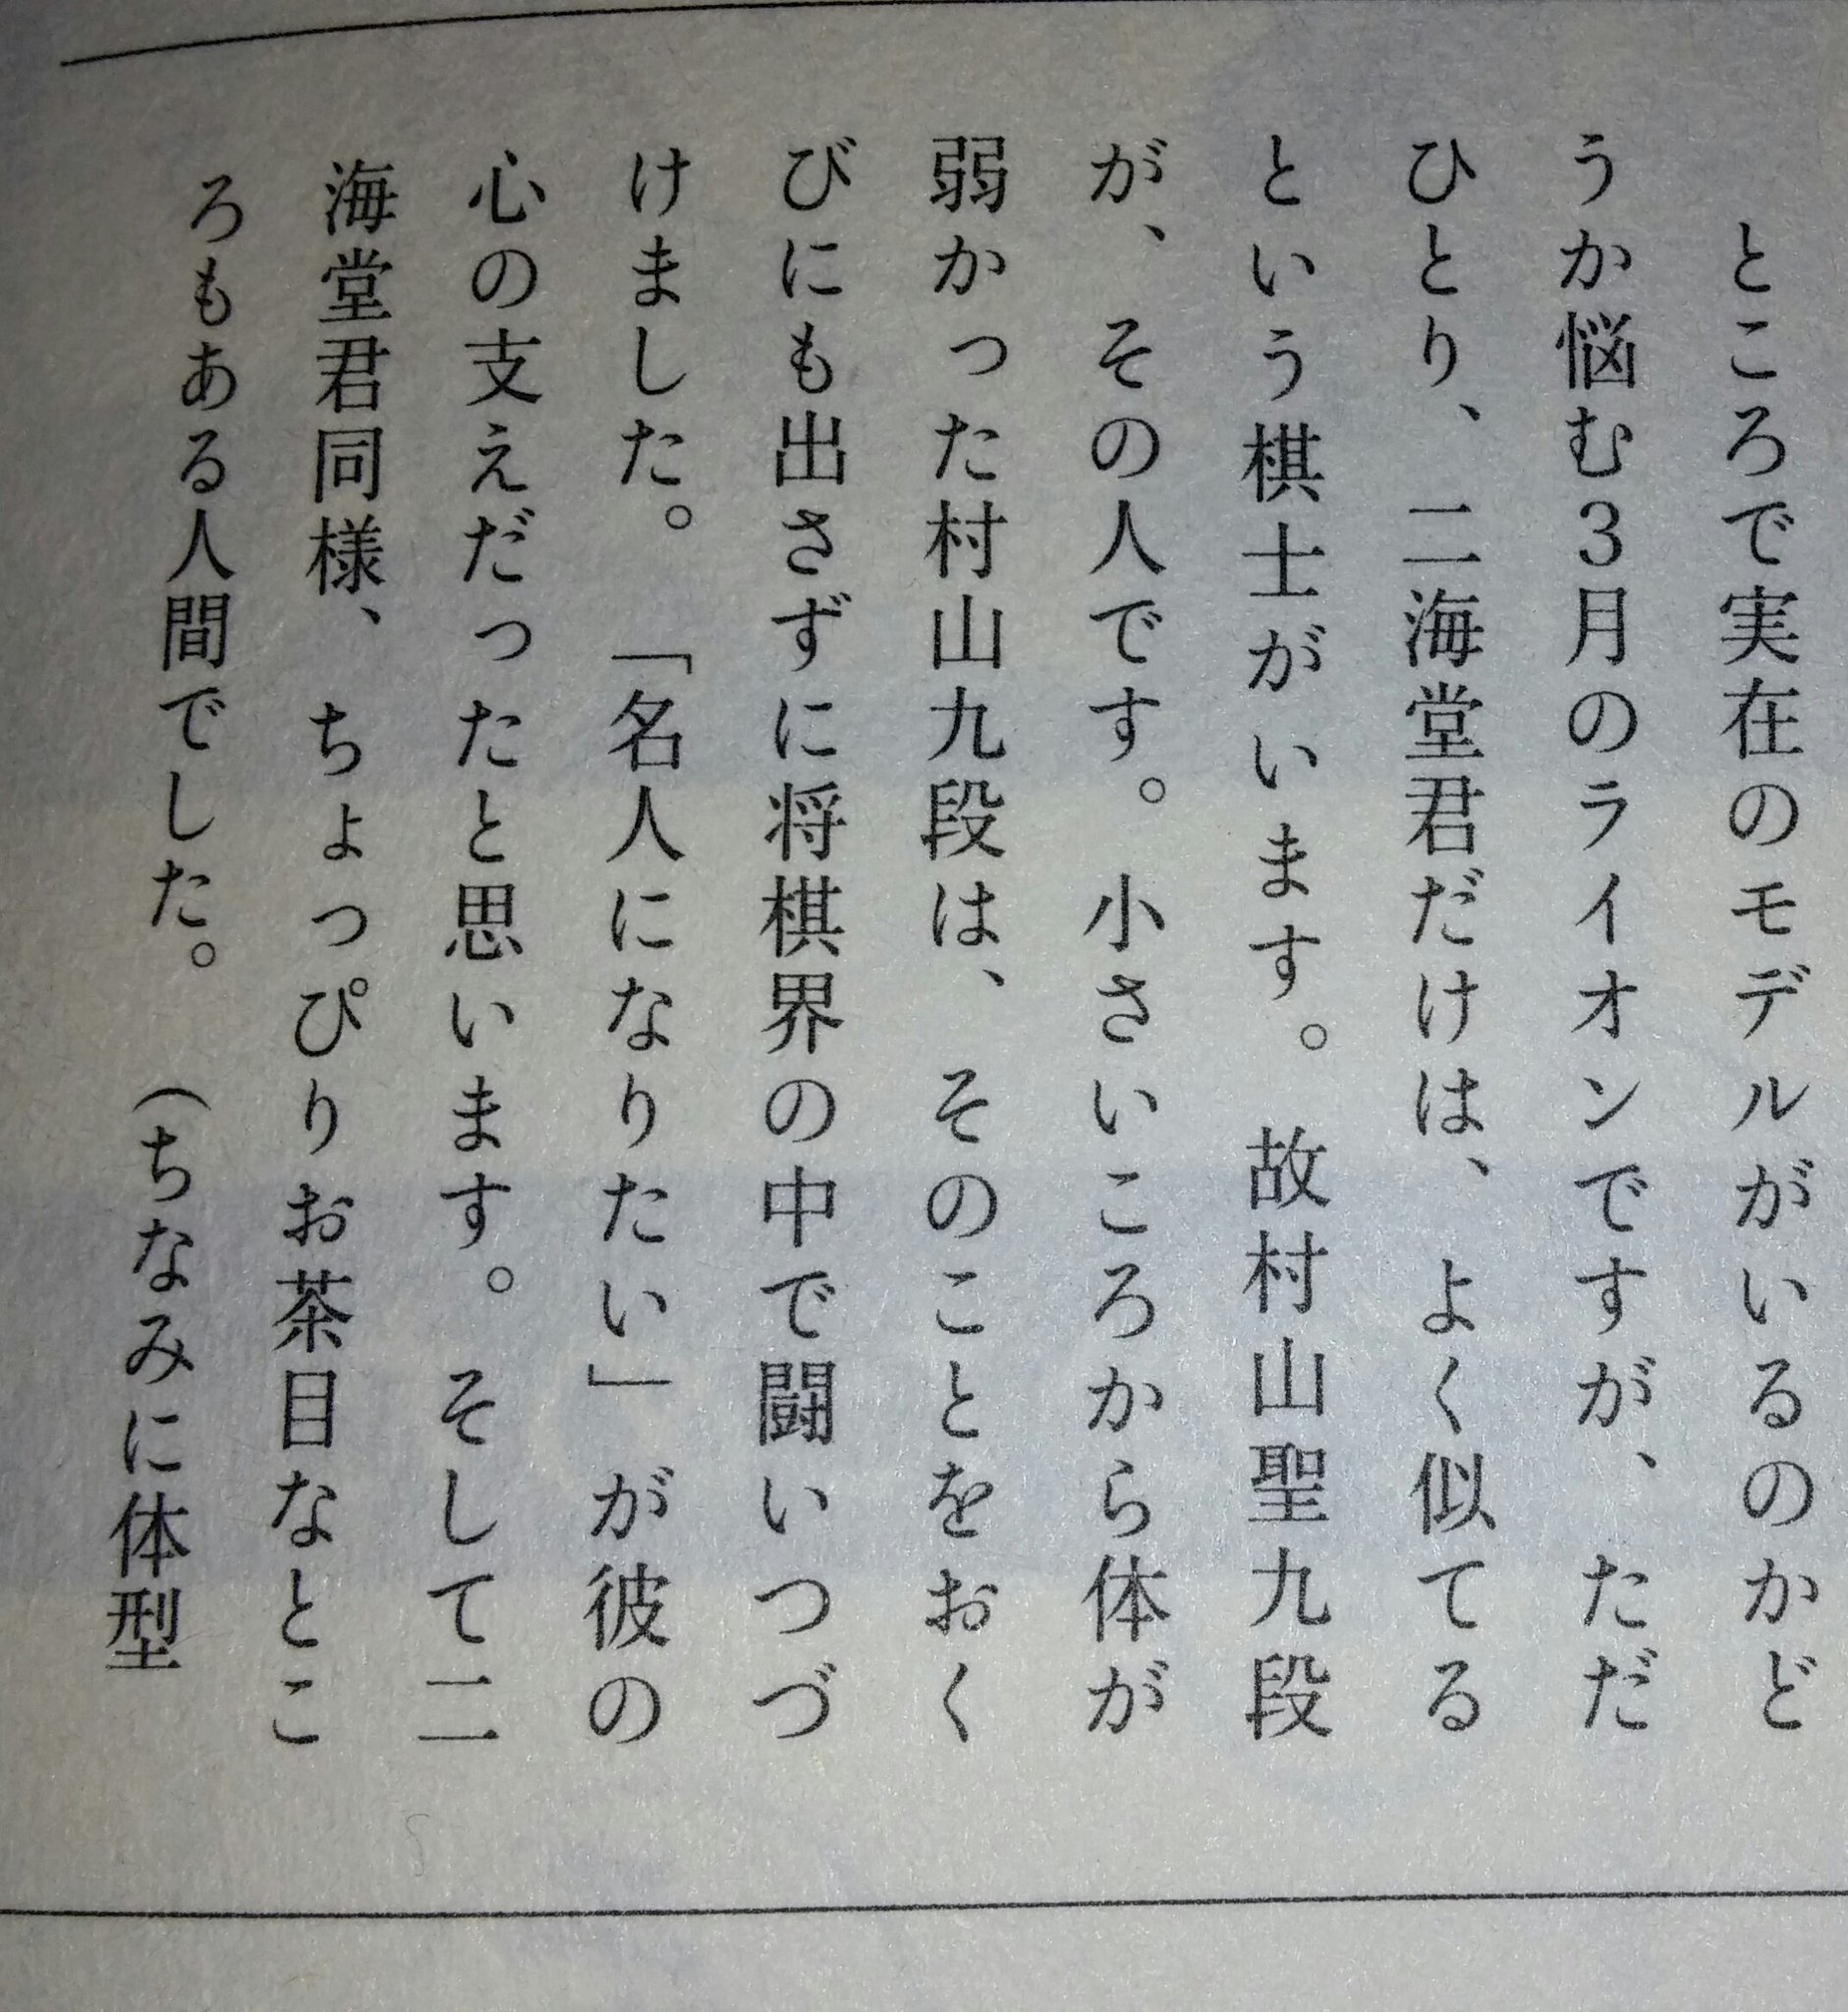 ところで実在のモデルがいるのかど
うか悩む3月のライオンですが、ただ
ひとり、二海堂君だけは、よく似てる
という棋士がいます。故村山聖九段
が、その人です。小さいころから体が
弱かった村山九段は、そのことをおく
びにも出さずに将棋界の中で闘いつづ
けました。「名人になりたい」が彼の
心の支えだったと思います。そして二
海堂君同様、ちょっぴりお茶目なとこ
ろもある人間でした。（ちなみに体型